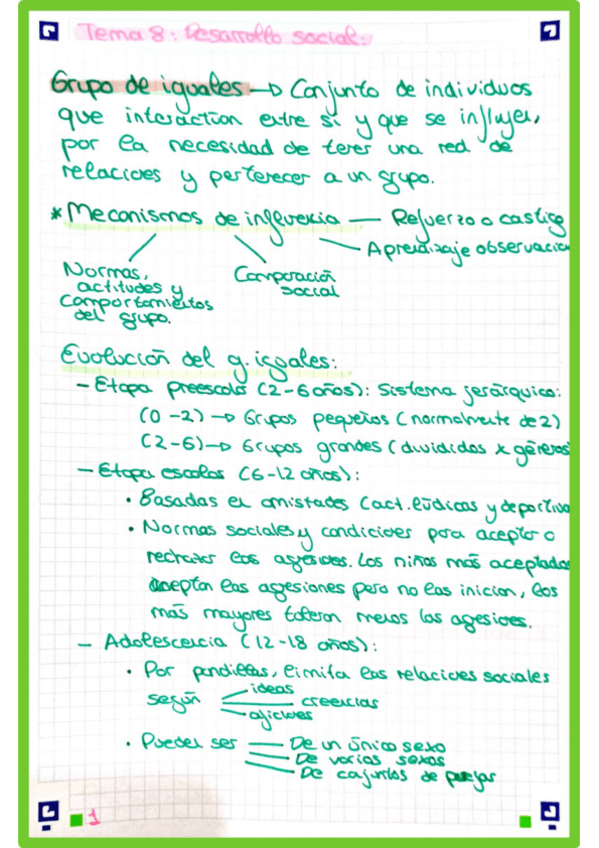 Tema 8: Desarrollo social:
Grupo de iguales → Conjunto de individuos
que interaction entre sí y que se influyen,
por la necesidad de tener una red de
relaciones y pertenecer a un grupo.
* Mecanismos de influencia — Refuerzo o castigo
Aprendizaje observacion
Normas,
actitudes y
comportamientos
del grupo.
Comparación
social
Evolución del g. iguales:
- Etapa preescolar (2-6 años): Sistema jerárquico:
(0-2) → Grupos pequeños (normalmente de 2)
(2-6) → Grupos grandes (divididos x géneros)
- Etapa escolar (6-12 años):
• Basadas en amistades (act. lúdicas y deportiva
• Normas sociales y condiciones para aceptar o
rechazar las agresiones. Los niños más aceptados
aceptan las agresiones pero no las inician, los
más mayores toleran menos las agresiones.
- Adolescencia (12-18 años):
• Por pandillas, limita las relaciones sociales
según
ideas
creencias
aficiones
• Pueden ser — De un único sexo
De varios sexos
De conjuntos de parejas
1